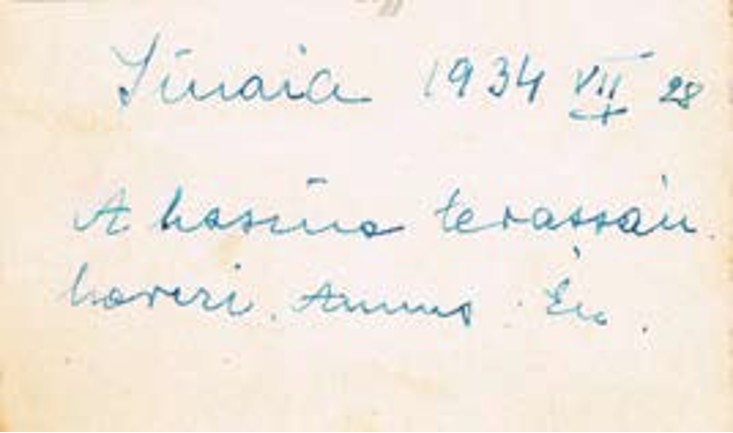 Sinaia 1934 VII 28
A kasino terassán
Annus Én.